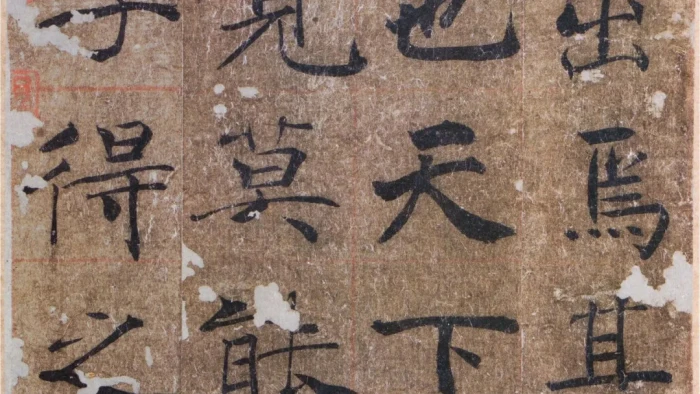 出焉其
也天下
見莫能
子得之